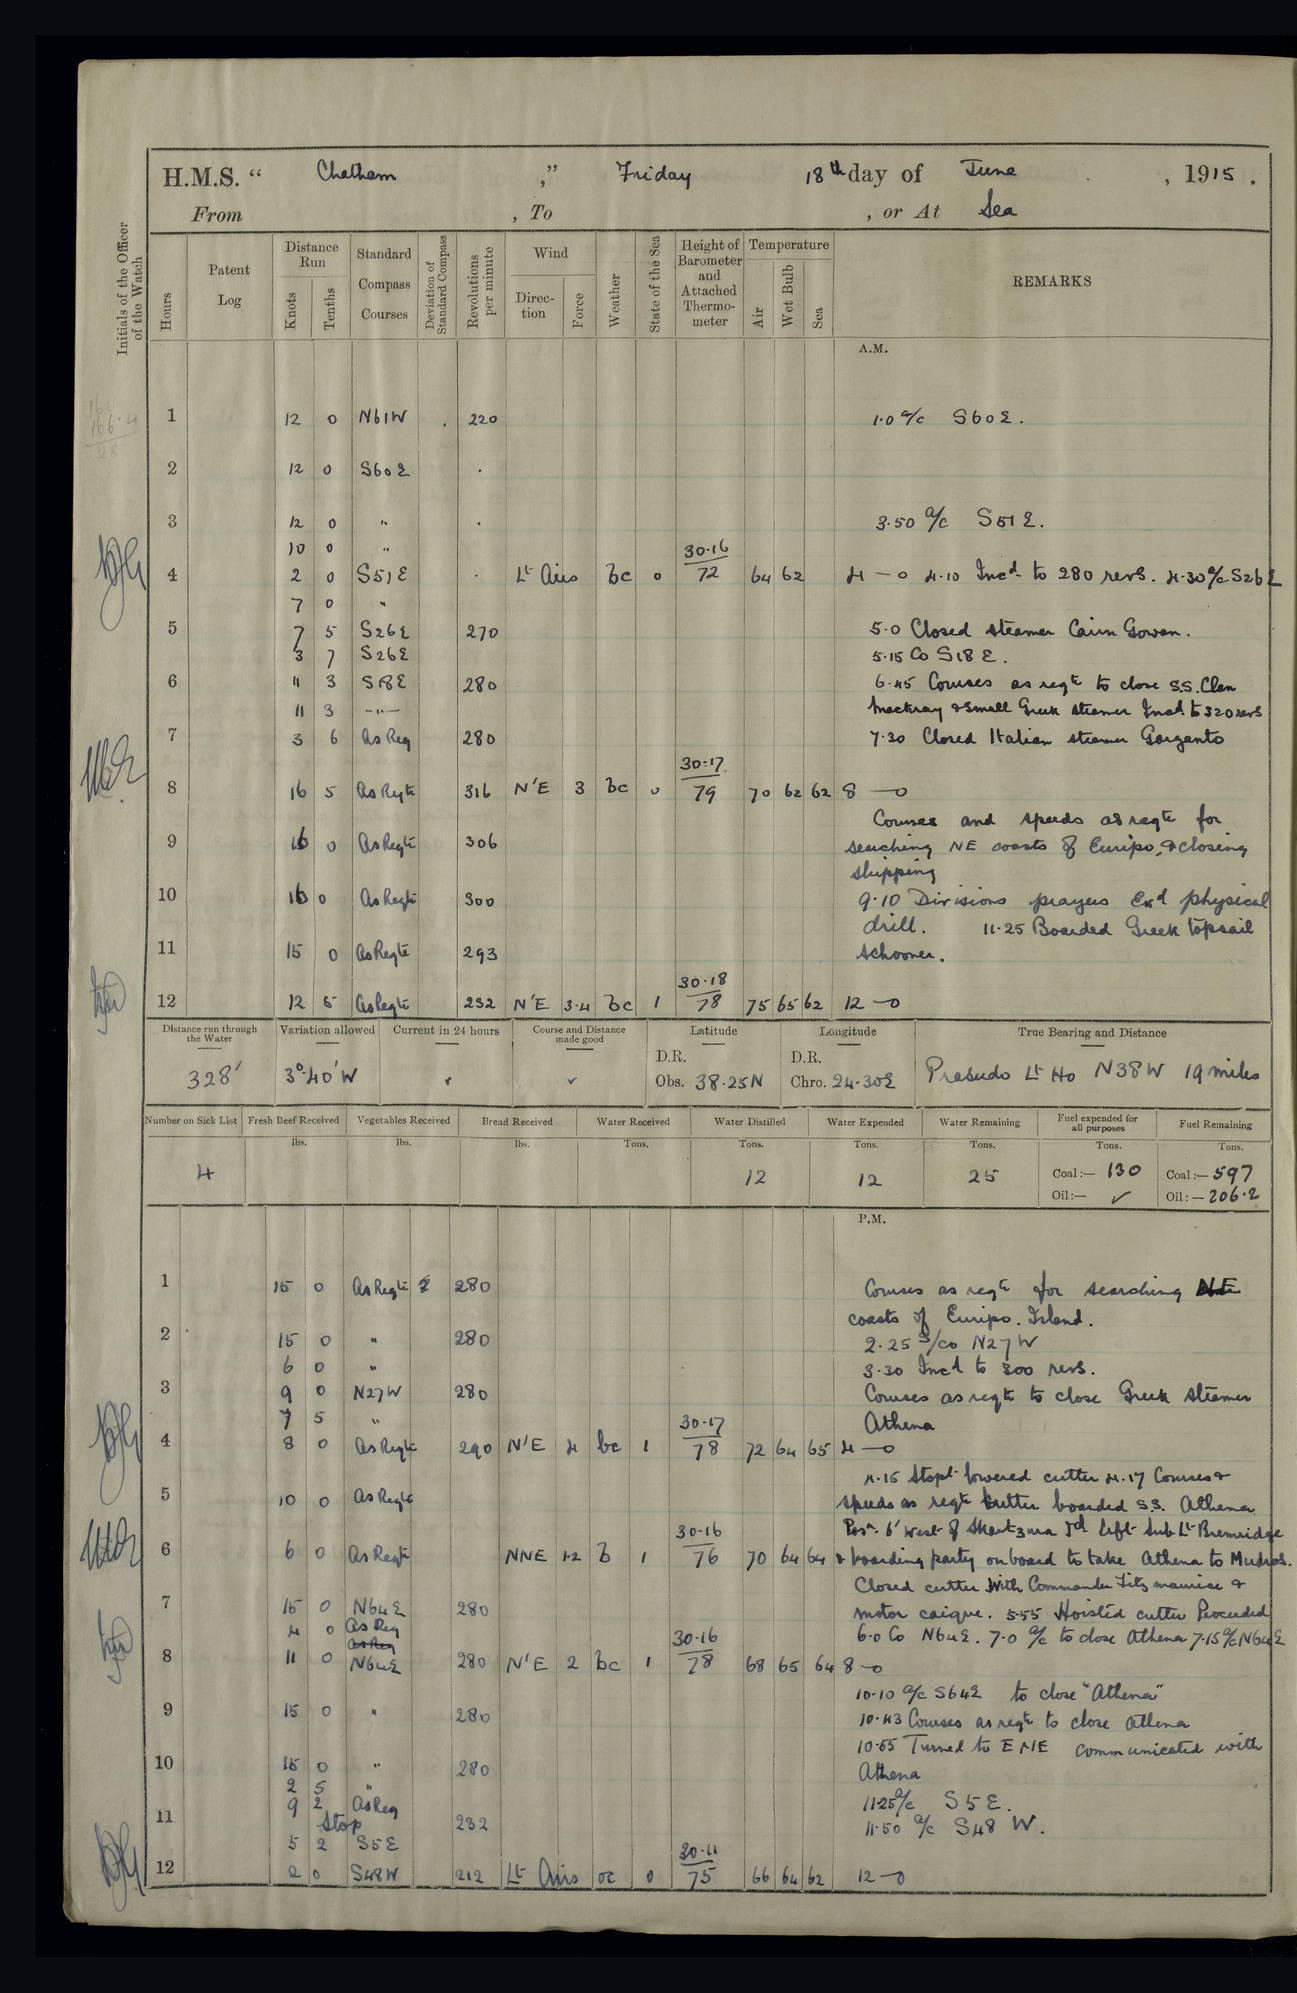 H.M.S. “ Chatham ,” Friday 18th day of June , 1915 .
From , To , or At Sea
Initials of the Officer of the Watch
Hours
Patent Log
Distance Run
Knots
Tenths
Standard Compass Courses
Deviation of Standard Compass
Revolutions per minute
Wind
Direction
Force
Weather
State of the Sea
Height of Barometer and Attached Thermometer
Temperature
Air
Wet Bulb
Sea
REMARKS
A.M.
1 12 0 N61W . 220 1.0 a/c S60E.
2 12 0 S60E .
3 12 0 " . 3.50 a/c S51E.
10 0 " 30.16
4 2 0 S51E . Lt Airs bc 0 72 64 62 4 — 0 4.10 Incd to 280 revs. 4.30 a/c S26E
7 0 "
5 7 5 S26E 270 5.0 Closed steamer Cairn Gowan.
3 7 S26E 5.15 Co S18E.
6 11 3 S18E 280 6.45 Courses as reqte to close S.S. Clan
11 3 —"— Mackray & small Greek steamer Incd to 320 revs
7 3 6 As Req 280 7.30 Closed Italian steamer Garganto
30.17
8 16 5 As Reqte 316 N'E 3 bc 0 79 70 62 62 8 — 0
Courses and speeds as reqte for
9 16 0 As Reqte 306 searching NE coasts of Euripo, & closing
shipping
10 16 0 As Reqte 300 9.10 Divisions prayers Exd physical
drill. 11.25 Boarded Greek topsail
11 15 0 As Reqte 293 schooner.
30.18
12 12 5 As Reqte 232 N'E 3.4 bc 1 78 75 65 62 12 — 0
Distance run through the Water
Variation allowed
Current in 24 hours
Course and Distance made good
Latitude
Longitude
True Bearing and Distance
328' 3°.40'W ✓ ✓ D.R. Obs. 38.25N D.R. Chro. 24.30E Prasudo Lt Ho N38W 19 miles
Number on Sick List
Fresh Beef Received
Vegetables Received
Bread Received
Water Received
Water Distilled
Water Expended
Water Remaining
Fuel expended for all purposes
Fuel Remaining
lbs. lbs. lbs. Tons. Tons. Tons. Tons. Tons. Tons.
4 12 12 25 Coal:— 130 Coal:— 597
Oil:— ✓ Oil:— 206.2
P.M.
1 15 0 As Reqte 280 Courses as reqte for searching NE
coasts of Euripo. Island.
2 15 0 " 280 2.25 S/co N27W
6 0 " 3.30 Incd to 300 revs.
3 9 0 N27W 280 Courses as reqte to close Greek steamer
7 5 " 30.17 Athena
4 8 0 As Reqte 290 N'E 4 bc 1 78 72 64 65 4 — 0
4.15 Stopd lowered cutter 4.17 Courses &
5 10 0 As Reqte speeds as reqte Cutter boarded S.S. Athena
30.16 Posn. 6' West of Id. left Sub Lt Bremridge
6 6 0 As Reqte NNE 1.2 b 1 76 70 64 64 & boarding party onboard to take Athena to Mudros.
Closed cutter with Commander Fitzmaurice &
7 15 0 N64E 280 motor caique. 5.55 Hoisted cutter Proceeded
4 0 As Req 30.16 6.0 Co N64E. 7.0 a/c to close Athena 7.15 a/c N64E
As Req
8 11 0 N64E 280 N'E 2 bc 1 78 68 65 64 8 — 0
10.10 a/c S64E to close "Athena"
9 15 0 " 280 10.43 Courses as reqte to close Athena
10.55 Turned to ENE communicated with
10 15 0 " 280 Athena
2 5 "
9 2 As Req 11.25 a/c S5E.
11 Stop 232 11.50 a/c S48W.
5 2 S5E 30.11
12 2 0 S48W 212 Lt Airs oc 0 75 66 64 62 12 — 0